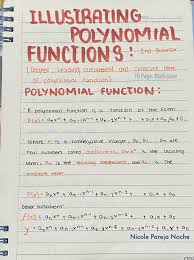 ILLUSTRATING
POLYNOMIAL
FUNCTIONS: 2nd Quarter
(Degree, Leading coefficient and constant term
of polynomial function)
POLYNOMIAL FUNCTION:
A polynomial function is a function of the form
P(x) = aₙxⁿ + aₙ₋₁xⁿ⁻¹ + aₙ₋₂xⁿ⁻² + ... + a₁x + a₀
Where n is a nonnegative integer, a₀, a₁, ... aₙ are
real numbers called coefficients, aₙxⁿ is the leading
term, aₙ is the leading coefficient, and a₀ is the
constant term.
P(x) = aₙxⁿ + aₙ₋₁xⁿ⁻¹ + aₙ₋₂xⁿ⁻² + ... + a₁x + a₀
Other Notations:
f(x) = aₙxⁿ + aₙ₋₁xⁿ⁻¹ + aₙ₋₂xⁿ⁻² + ... + a₁x + a₀
y = aₙxⁿ + aₙ₋₁xⁿ⁻¹ + aₙ₋₂xⁿ⁻² + ... + a₁x + a₀
Nicole Pareja Nocha